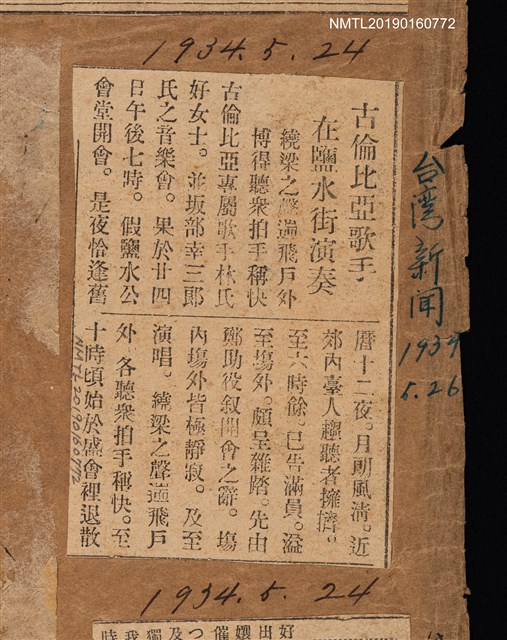 NMTL20190160772
1934.5.24
古倫比亞歌手
在鹽水街演奏
繞梁之聲遏飛戶外
博得聽衆拍手稱快
古倫比亞專屬歌手林氏
好女士。並坂部幸三郎
氏之音樂會。果於廿四
日午後七時。假鹽水公
會堂開會。是夜恰逢舊
曆十二夜。月朗風清。近
郊內臺人趨聽者擁擠。
至六時餘。已告滿員。溢
至塲外。頗呈雜踏。先由
鄭助役叙開會之辭。塲
內塲外皆極靜寂。及至
演唱。繞梁之聲遏飛戶
外。各聽衆拍手稱快。至
十時頃始於盛會裡退散
NMTL20190160772
台湾新聞
1934
5.26
1934.5.24
好
出
孃
催
つ
及
獨
我
時